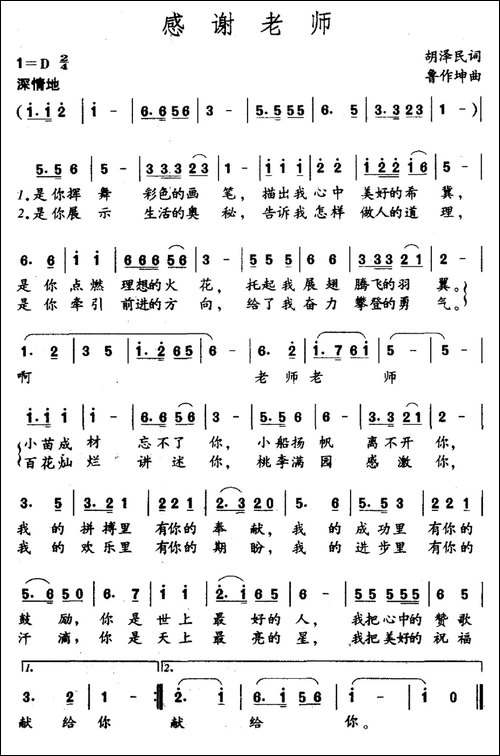 感谢老师
1=D 2/4
胡泽民词
深情地
鲁作坤曲
(1.1 2 | 1 - | 6.6 56 | 3 - | 5.5 55 | 6. 5 | 3.3 23 | 1 - )
5.5 6 | 5 - | 3 3 3 23 | 1 - | 1 1 1 1 | 2 2 | 1 2 2 16 | 6 - |
1.是你挥舞 彩色的画笔,描出我心中 美好的希冀,
2.是你展示 生活的奥秘,告诉我怎样 做人的道理,
6. 6 | 1 1 | 6 6 6 56 | 3 - | 5 5 5 5 | 6 6 | 3 3 3 21 | 2 - |
是你点燃 理想的火花,托起我展翅 腾飞的羽翼。
是你牵引 前进的方向,给了我奋力 攀登的勇气。
1. 2 | 3 5 | 1.2 65 | 6 - | 6. 6 | 1.7 61 | 5 - | 5 - |
啊 老师老师
1.1 1 | 2 1 | 6.6 56 | 3 - | 5.5 6 | 5 5 | 3.3 21 | 2 - |
小苗成材 忘不了你,小船扬帆 离不开你,
百花灿烂 讲述你,桃李满园 感激你,
3. 5 | 3.2 1 | 2 2 1 | 2.3 20 | 5. 6 | 5.6 5 | 2 2 1 |
我的拼搏里有你的奉献,我的成功里有你的
我的欢乐里有你的期盼,我的进步里有你的
5.6 50 | 6. 7 | 1 1 | 2.1 6 | 6 - | 5 5 5 5 5 | 5 6 |
鼓励,你是世上最好的人,我把心中的赞歌
汗滴,你是天上最亮的星,我把美好的祝福
1. 2.
3. 2 | 1 - :| 2. 1 | 6.1 56 | 1 - | 1 0 ‖
献给你 献给你。